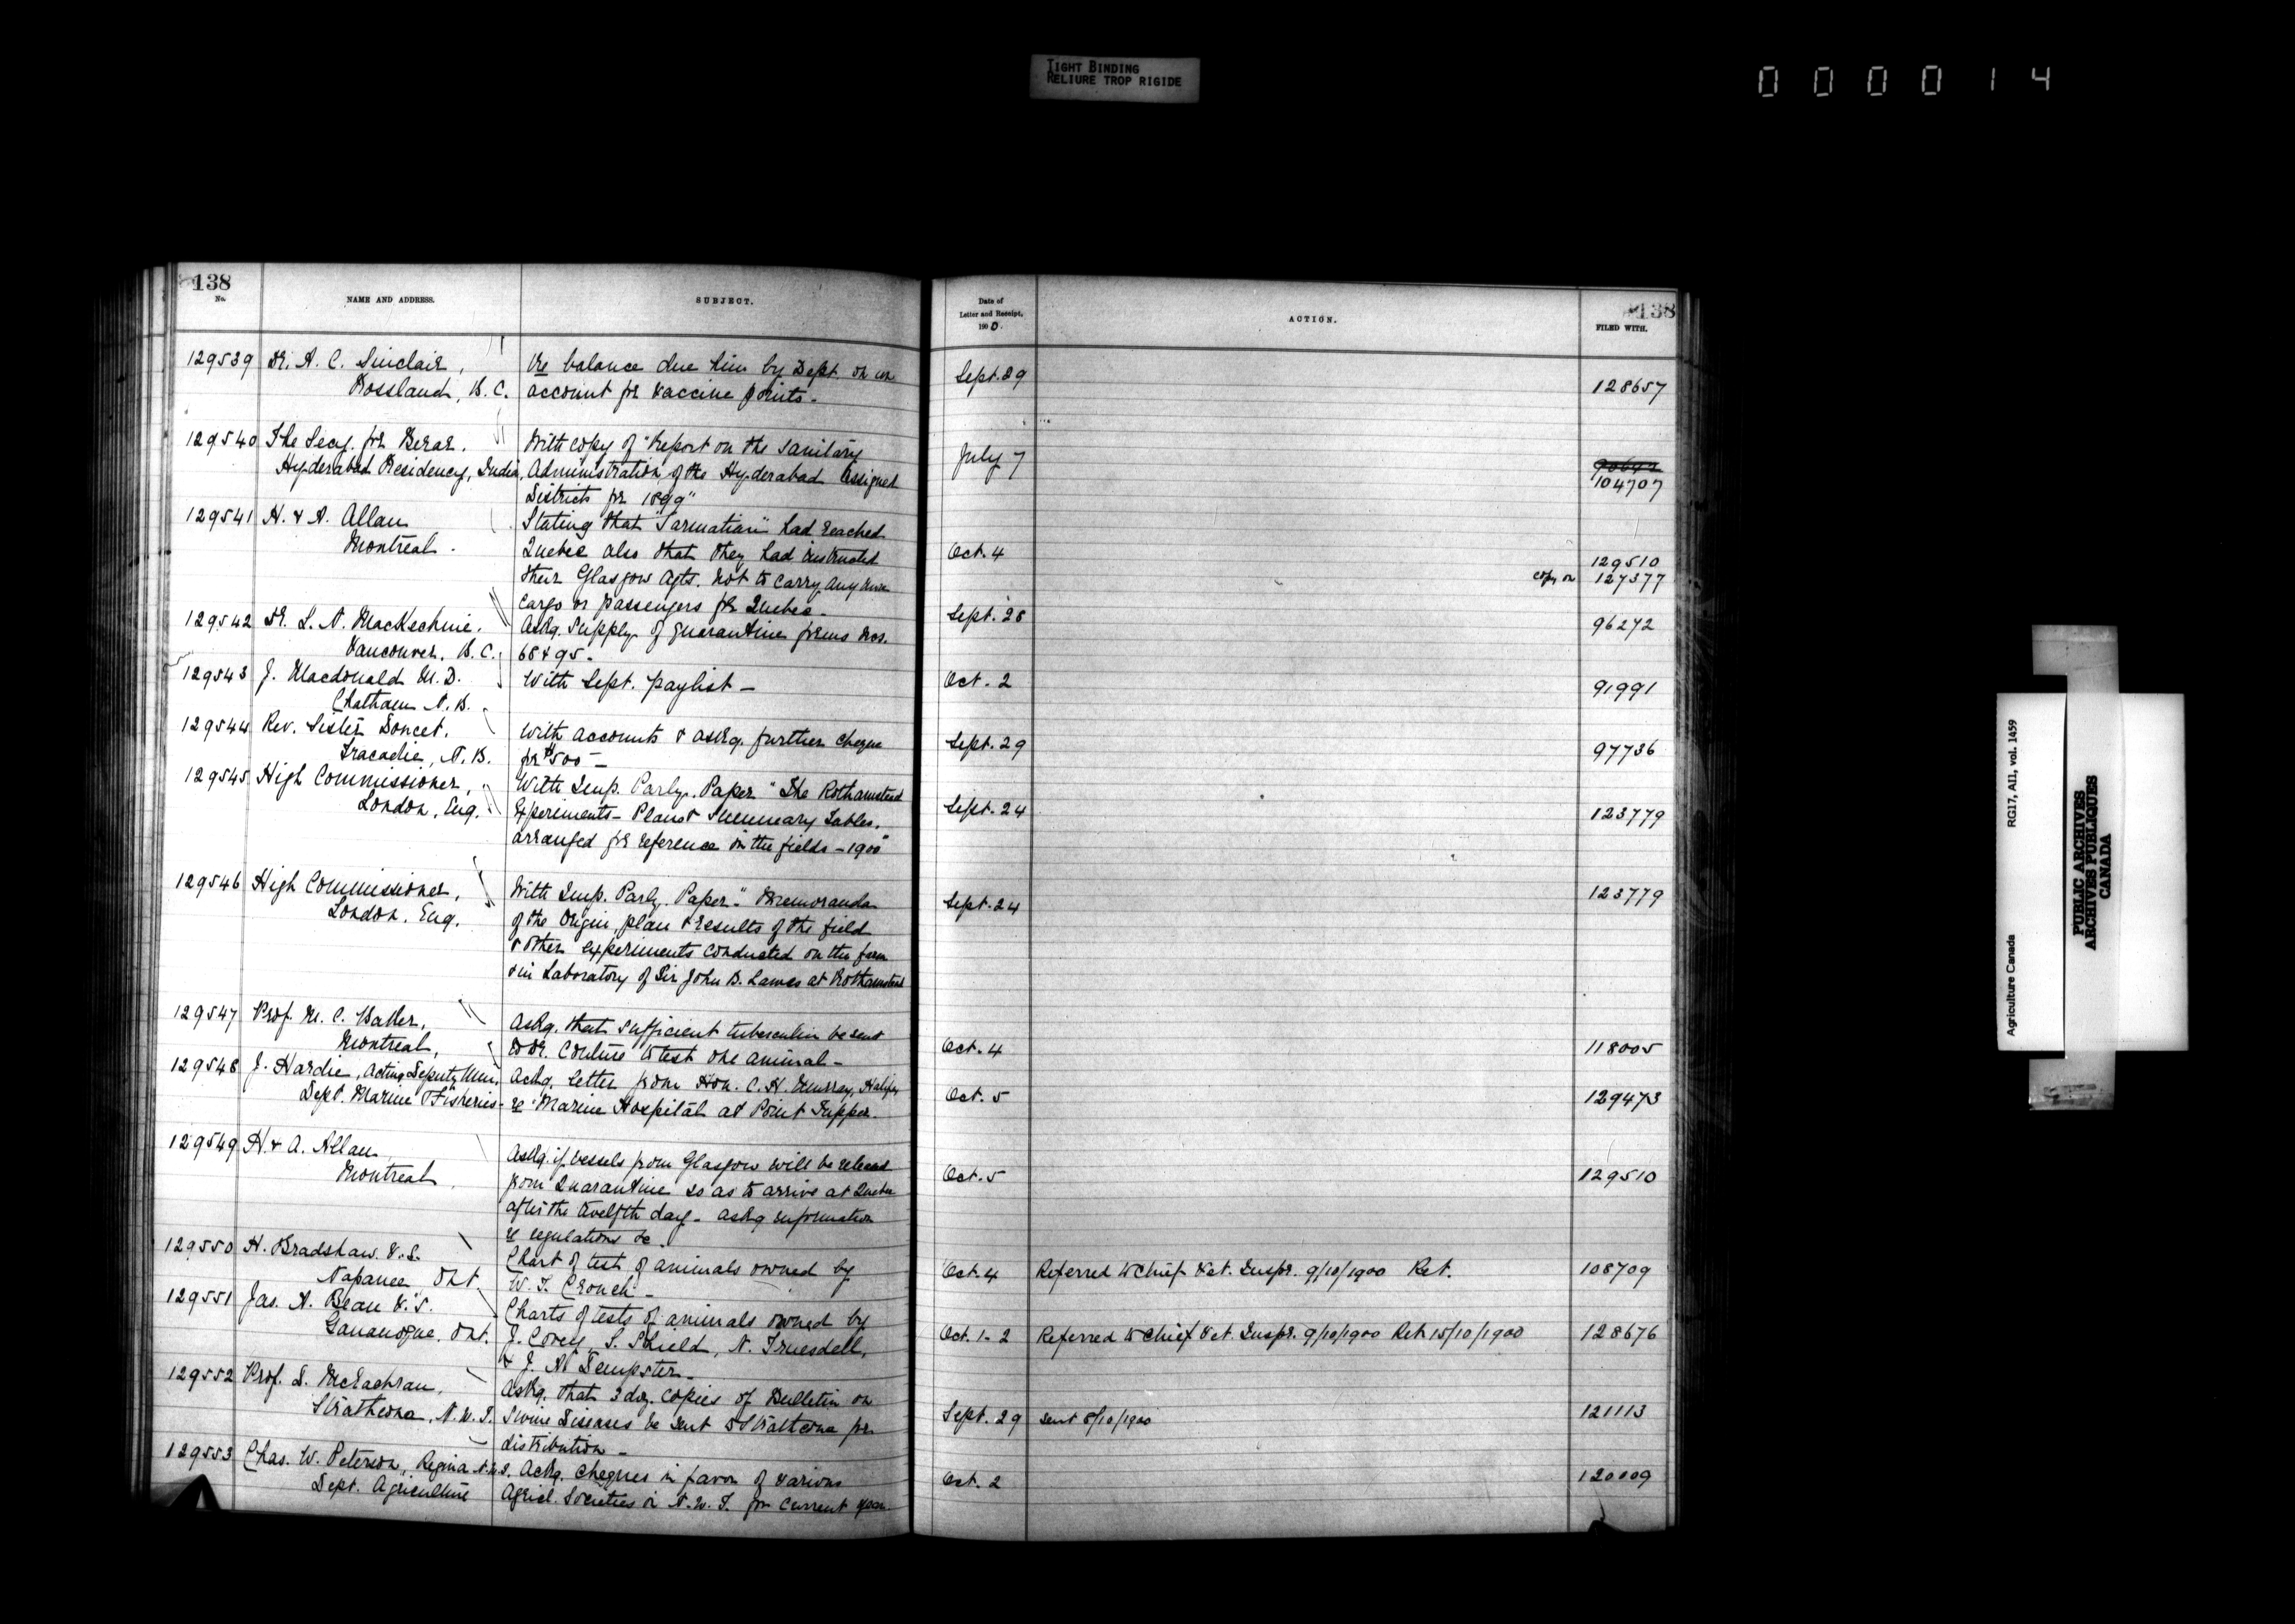 TIGHT BINDING
RELIURE TROP RIGIDE
000014
138
No.
NAME AND ADDRESS.
SUBJECT.
Date of
Letter and Receipt,
1900.
ACTION.
138
FILED WITH.
129539 Dr. A. C. Sinclair, Re balance due him by Dept. on Sept. 29
Rossland, B.C. account for vaccine points - 128657
129540 The Secy. for Berar. With copy of "Report on the Sanitary July 7
Hyderabad Residency, India, Administration of the Hyderabad Assigned 104707
Districts for 1899"
129541 H. & A. Allan Stating that "Sarmatian" had reached
Montreal. Quebec also that they had instructed Oct. 4 129510
their Glasgow Agts. not to carry any more copy on 127377
cargo or passengers for Quebec -
129542 Dr. L. N. MacKechnie. Askg. supply of quarantine forms nos. Sept. 28 96272
Vancouver, B.C. 68 & 95.
129543 J. Macdonald M.D. With Sept. paylist - Oct. 2 91991
Chatham N.B.
129544 Rev. Sister Doucet. With accounts & askg. further cheque Sept. 29 97736
Tracadie, N.B. for $500 -
129545 High Commissioner, With Imp. Parly. Paper "The Rothamsted
London, Eng. Experiments - Plans & Summary Tables, Sept. 24 123779
arranged for reference in the fields - 1900"
129546 High Commissioner, With Imp. Parly. Paper - "Memoranda Sept. 24 123779
London, Eng. of the Origin, plan & results of the field
& other experiments conducted on the farm
& in Laboratory of Sir John B. Lawes at Rothamsted
129547 Prof. M. C. Baker, Askg. that sufficient tuberculin be sent
Montreal, to Dr. Couture to test one animal - Oct. 4 118005
129548 J. Hardie, Acting Deputy Min. Ackg. letter from Hon. C. H. Murray, Halifax
Dept. Marine & Fisheries - re "Marine Hospital at Point Tupper. Oct. 5 129473
129549 H & A. Allan Askg. if vessels from Glasgow will be released
Montreal. from Quarantine so as to arrive at Quebec Oct. 5 129510
after the twelfth day - askg information
re regulations &c.
129550 H. Bradshaw. V.S. Chart of test of animals owned by
Napanee Ont. W. T. Crouch - Oct. 4 Referred to Chief Vet. Inspr. 9/10/1900 Ret. 108709
129551 Jas. A. Bean V.S. Charts of tests of animals owned by
Gananoque, Ont. J. Covey, S. Shield, N. Truesdell, Oct. 1-2 Referred to Chief Vet. Inspr. 9/10/1900 Ret. 15/10/1900 128676
& J. N. Dempster -
129552 Prof. D. McEachran, Askg. that 3 doz. copies of Bulletin on
Strathcona, N.W.T. Swine Diseases be sent to Strathcona for Sept. 29 sent 8/10/1900 121113
distribution -
129553 Chas. W. Peterson, Regina N.W.T. Ackg. cheques in favor of various Oct. 2 120009
Dept. Agriculture Agricl. Societies in N.W.T. for current year
Agriculture Canada RG17, AII, vol. 1459
PUBLIC ARCHIVES
ARCHIVES PUBLIQUES
CANADA